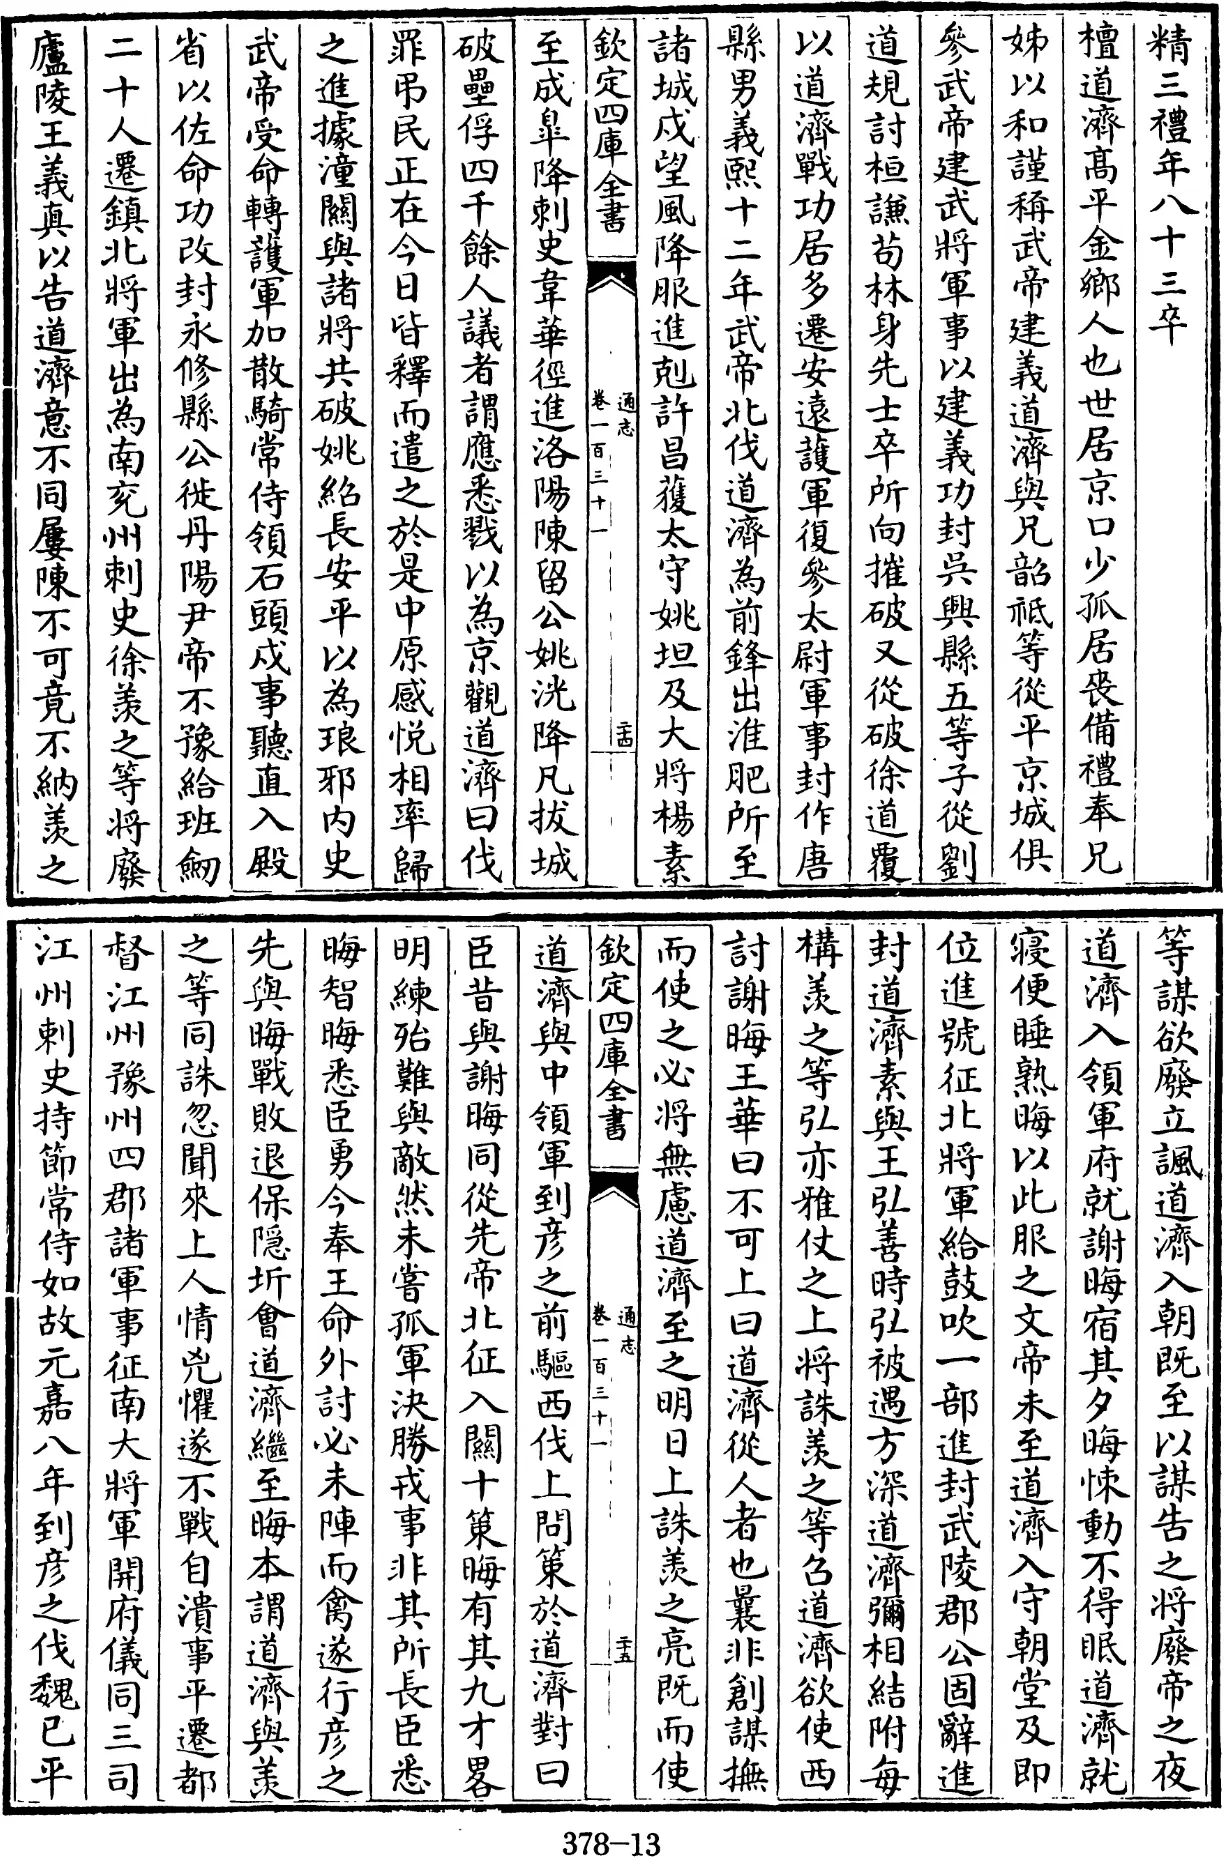 精三禮年八十三卒
檀道濟髙平金鄉人也世居京口少孤居喪備禮奉兄
姊以和謹稱武帝建義道濟與兄韶祗等從平京城俱
參武帝建武將軍事以建義功封吳興縣五等子從劉
道規討桓謙荀林身先士卒所向摧破又從破徐道覆
以道濟戰功居多遷安遠護軍復參太尉軍事封作唐
縣男義熙十二年武帝北伐道濟為前鋒出淮肥所至
諸城戍望風降服進剋許昌獲太守姚坦及大將楊素
欽定四庫全書
通志
卷一百三十一
二十四
至成臯降刺史韋華徑進洛陽陳留公姚洸降凡拔城
破壘俘四千餘人議者謂應悉戮以為京觀道濟曰伐
罪弔民正在今日皆釋而遣之於是中原感悦相率歸
之進據潼關與諸將共破姚紹長安平以為琅邪内史
武帝受命轉護軍加散騎常侍領石頭戍事聽直入殿
省以佐命功改封永修縣公徙丹陽尹帝不豫給班劒
二十人遷鎮北將軍出為南兖州刺史徐羨之等將廢
廬陵王義真以告道濟意不同屢陳不可竟不納羨之
等謀欲廢立諷道濟入朝既至以謀告之將廢帝之夜
道濟入領軍府就謝晦宿其夕晦悚動不得眠道濟就
寢便睡熟晦以此服之文帝未至道濟入守朝堂及即
位進號征北將軍給鼓吹一部進封武陵郡公固辭進
封道濟素與王弘善時弘被遇方深道濟彌相結附每
構羨之等弘亦雅仗之上將誅羨之等召道濟欲使西
討謝晦王華曰不可上曰道濟從人者也曩非創謀撫
而使之必將無慮道濟至之明日上誅羨之亮既而使
欽定四庫全書
通志
卷一百三十一
二十五
道濟與中領軍到彦之前驅西伐上問策於道濟對曰
臣昔與謝晦同從先帝北征入關十策晦有其九才畧
明練殆難與敵然未嘗孤軍決勝戎事非其所長臣悉
晦智晦悉臣勇今奉王命外討必未陣而禽遂行彦之
先與晦戰敗退保隱圻會道濟繼至晦本謂道濟與羨
之等同誅忽聞來上人情兇懼遂不戰自潰事平遷都
督江州豫州四郡諸軍事征南大將軍開府儀同三司
江州刺史持節常侍如故元嘉八年到彦之伐魏已平
378-13